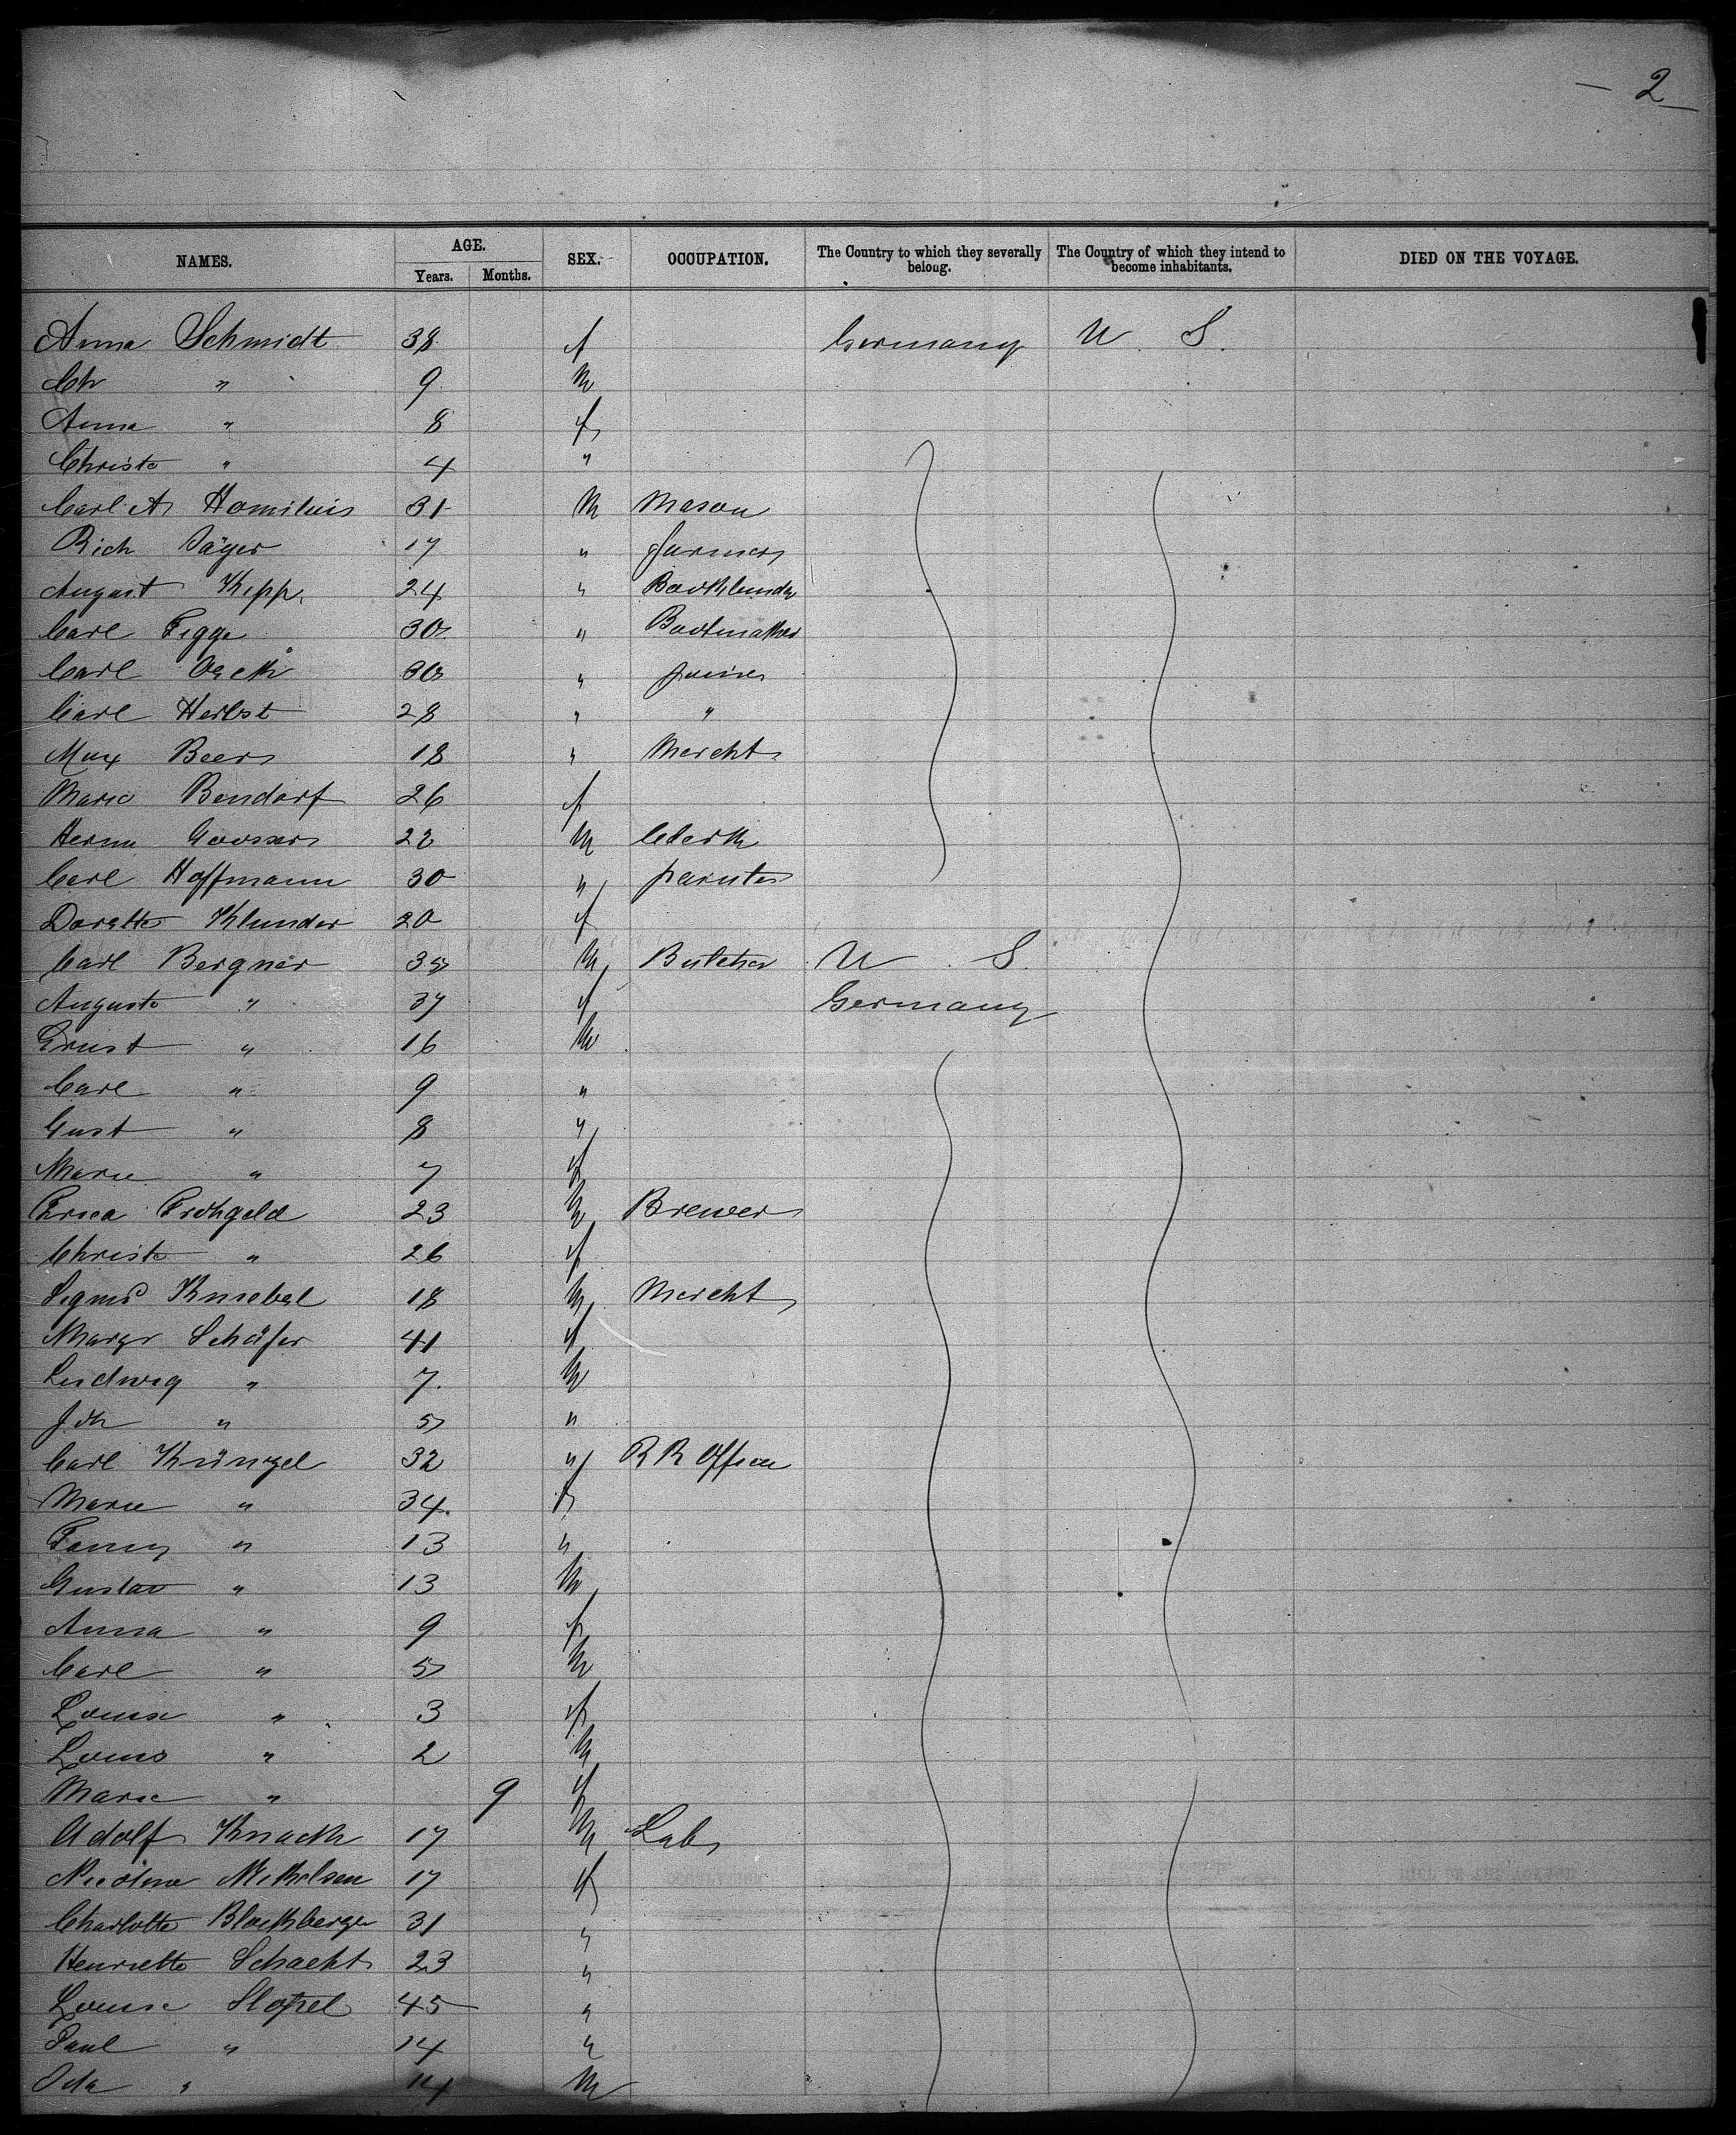 — 2 —
NAMES. AGE. SEX. OCCUPATION. The Country to which they severally belong. The Country of which they intend to become inhabitants. DIED ON THE VOYAGE.
Years. Months.
Anna Schmidt 38 f Germany U. S.
Ch " 9 m
Anna " 8 f
Christe " 4 "
Carl A Homilius 31 m Mason
Rich Jäger 17 " farmer
August Kipp 24 "
Carl Figge 30 " Bootmaker
Carl 30 " joiner
Carl Herbst 28 " "
Max Beer 18 " Mercht
Marie Bendorf 26 f
Herm Goossen 22 m Clerk
Carl Hoffmann 30 " painter
Dorette Klunder 20 f
Carl Bergner 35 m Butcher U S
Auguste " 37 f Germany
Ernst " 16 m
Carl " 9 "
Gust " 8 "
Marie " 7 f
23 m Brewer
Christe " 26 f
Sigmd Kniebel 18 m Mercht
Margr Schäfer 41 f
Ludwig " 7 m
Joh " 5 "
Carl Künzel 32 " R R Officer
Marie " 34 f
Fanny " 13 "
Gustav " 13 m
Anna " 9 f
Carl " 5 m
Louise " 3 f
Louis " 2 m
Marie " 9 f
Adolf Knack 17 m Lab
Nicoline 17 f
Charlotte Blackberger 31 "
Henriette Schacht 23 "
Louise 45 "
Paul " 14 "
Oda " 14 m